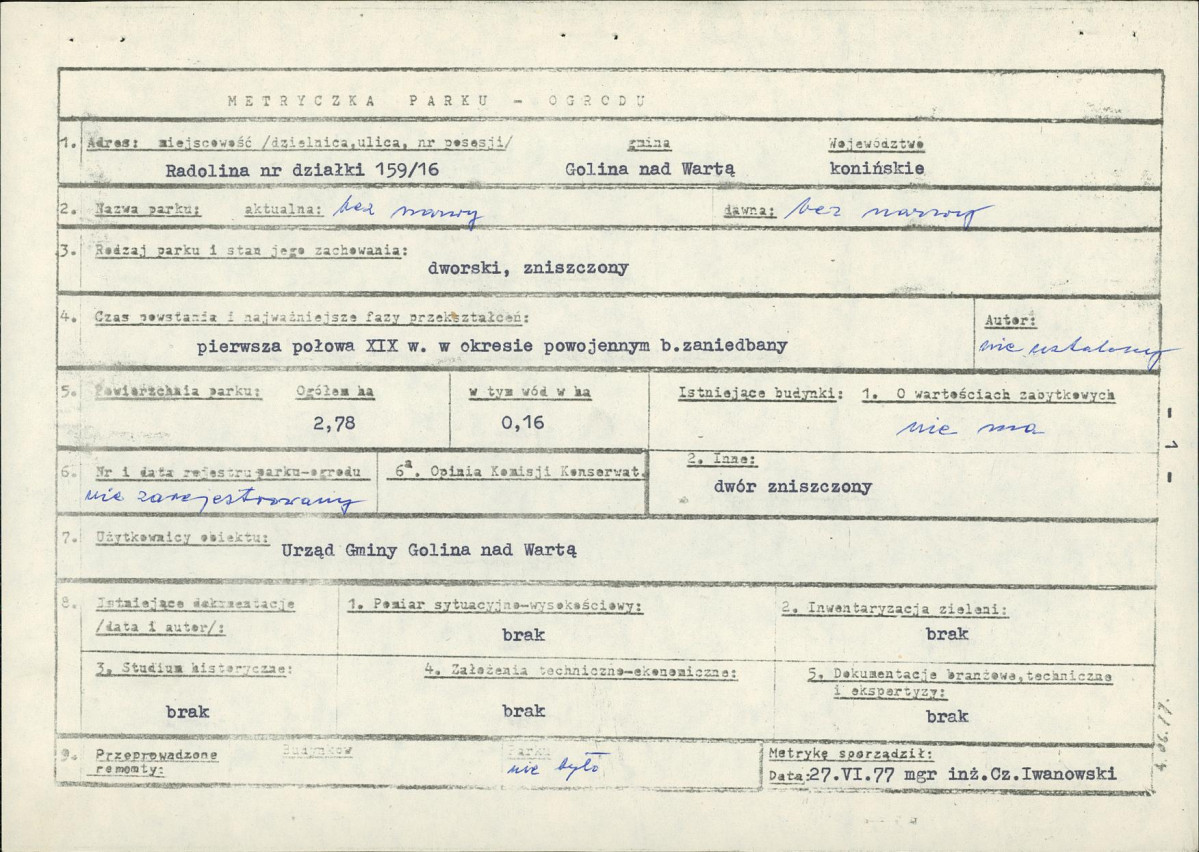 METRYCZKA PARKU - OGRODU
1. Adres: miejscowość /dzielnica,ulica, nr posesji/ gmina Województwo
Radolina nr działki 159/16 Golina nad Wartą konińskie
2. Nazwa parku: aktualna: bez nazwy dawna: bez nazwy
3. Rodzaj parku i stan jego zachowania:
dworski, zniszczony
4. Czas powstania i najważniejsze fazy przekształceń: Autor:
pierwsza połowa XIX w. w okresie powojennym b.zaniedbany nie ustalony
5. Powierzchnia parku: Ogółem ha w tym wód w ha Istniejące budynki: 1. O wartościach zabytkowych
2,78 0,16 nie ma
6. Nr i data rejestru parku-ogrodu 6a. Opinia Komisji Konserwat. 2. Inne:
nie zarejestrowany dwór zniszczony
- 1 -
7. Użytkownicy obiektu: Urząd Gminy Golina nad Wartą
8. Istniejące dokumentacje 1. Pomiar sytuacyjno-wysokościowy: 2. Inwentaryzacja zieleni:
/data i autor/: brak brak
3. Studium historyczne: 4. Założenia techniczno-ekonomiczne: 5. Dokumentacje branżowe,techniczne
i ekspertyzy:
brak brak brak
9. Przeprowadzone Budynków Parku Metrykę sporządził:
remonty: nie było Data:27.VI.77 mgr inż.Cz.Iwanowski